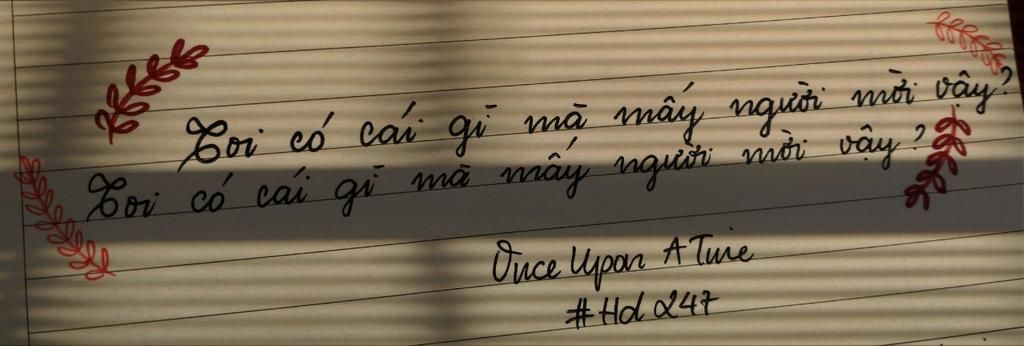 Toi có cái gì mà mấy người mời vậy?
Toi có cái gì mà mấy người mời vậy?
Once Upon A Time
#Hd 247